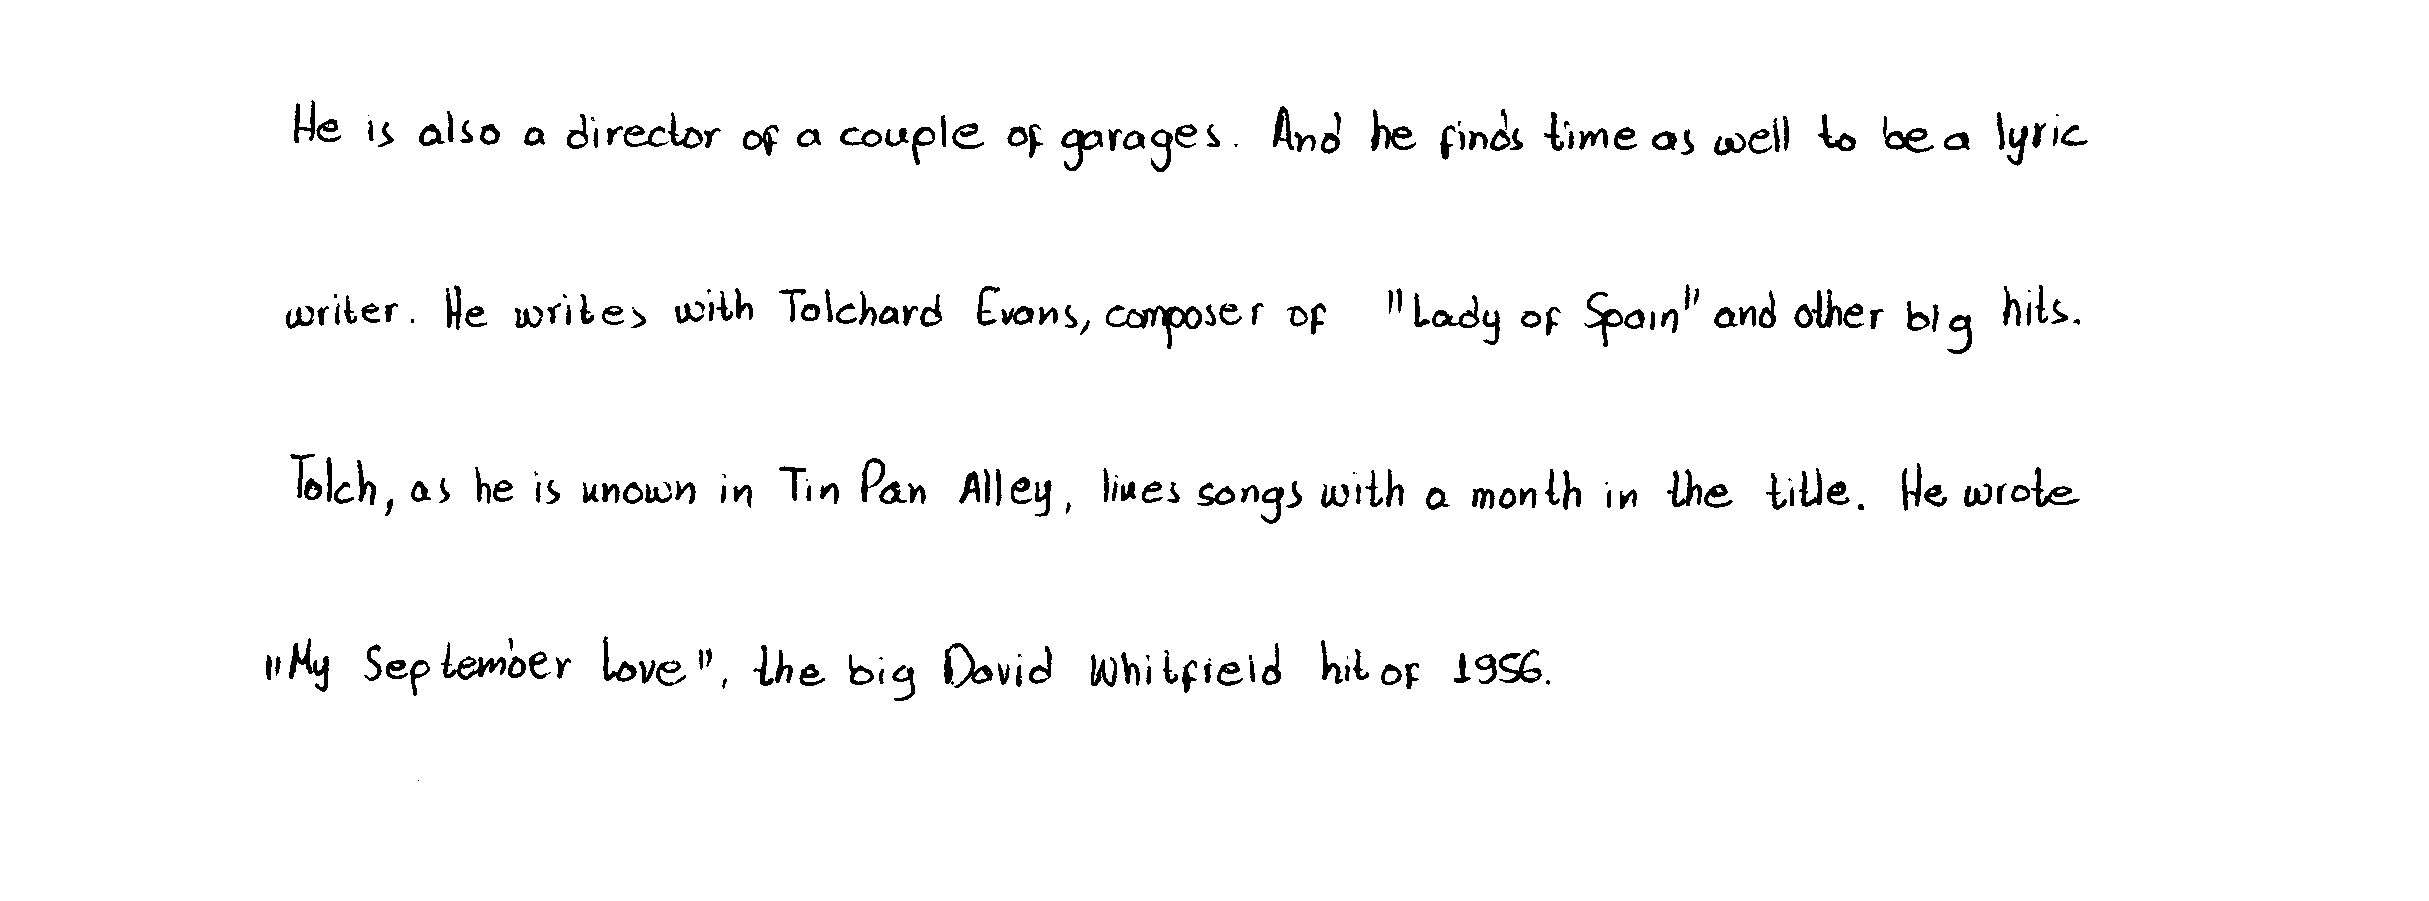 He is also a director of a couple of garages. And he finds time as well to be a lyric
writer. He writes with Tolchard Evans, composer of "Lady of Spain" and other big hits.
Tolch, as he is known in Tin Pan Alley, likes songs with a month in the title. He wrote
"My September Love", the big David Whitfield hit of 1956.